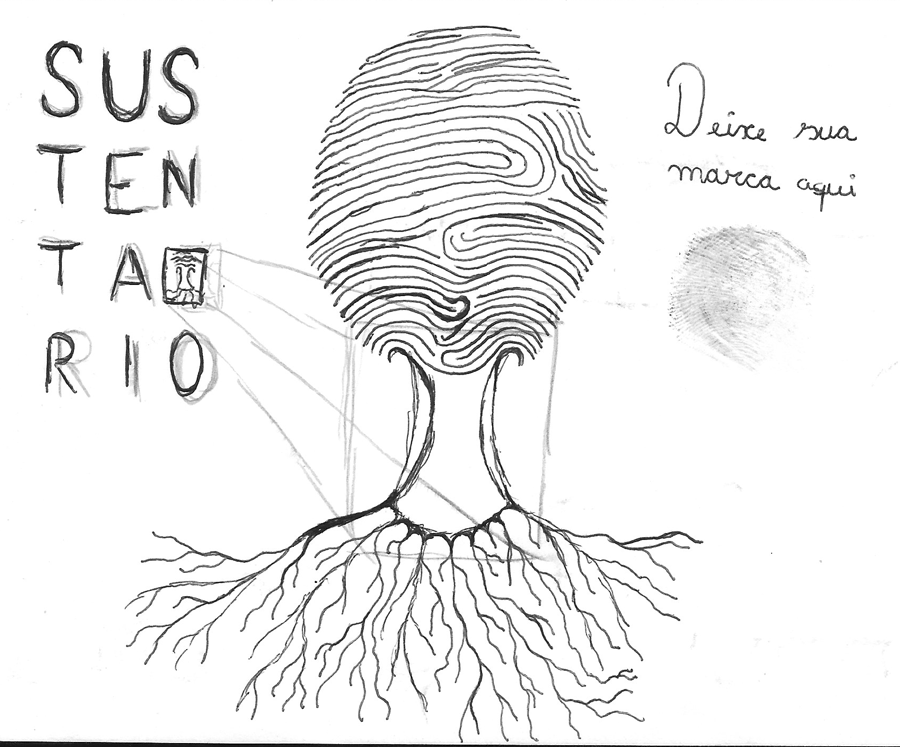 SUS
TEN
TA
RIO
Deixe sua
marca aqui